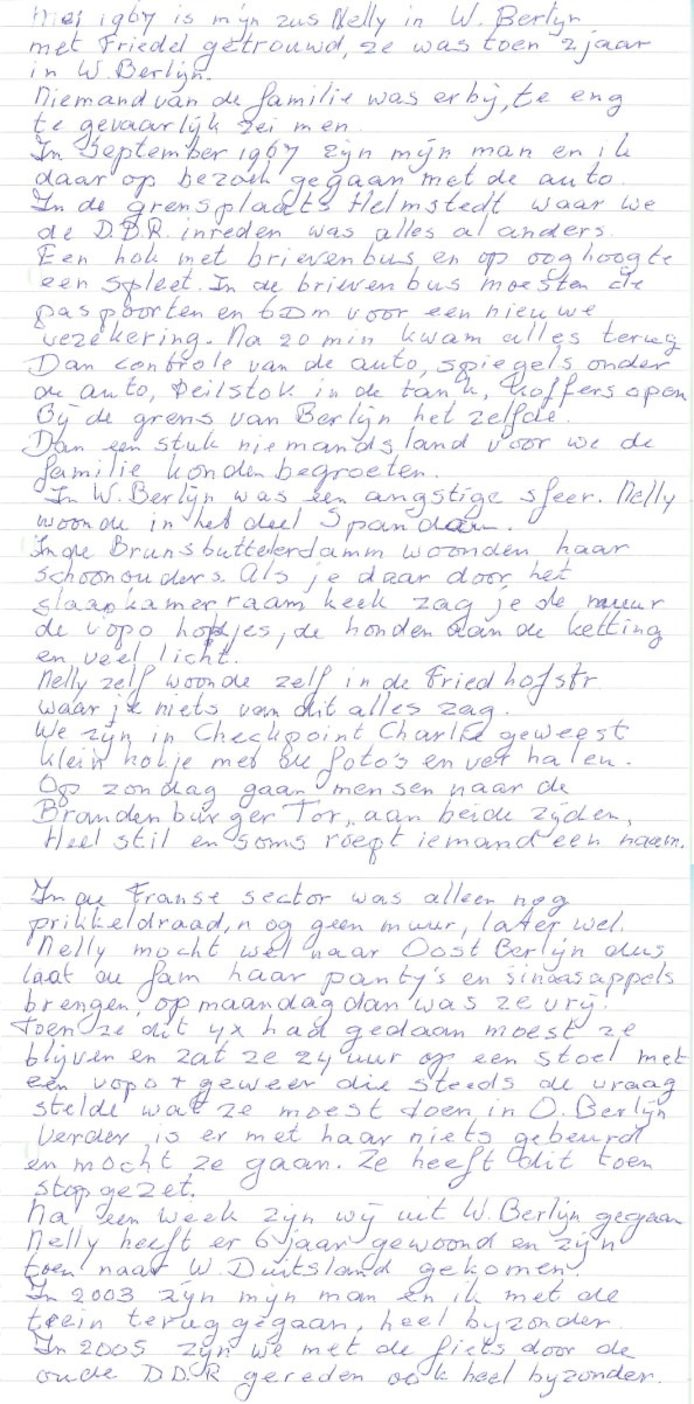 Mei 1967 is mijn zus Nelly in W. Berlijn
met Friedel getrouwd, ze was toen 2 jaar
in W. Berlijn.
Niemand van de familie was erbij, te eng
te gevaarlijk zei men.
In September 1967 zijn mijn man en ik
daar op bezoek gegaan met de auto.
In de grensplaats Helmstedt waar we
de D.D.R. inreden was alles al anders.
Een hok met brievenbus en op ooghoogte
een spleet. In de brievenbus moesten de
paspoorten en 6 Dm voor een nieuwe
verzekering. Na 20 min kwam alles terug
Dan controle van de auto, spiegels onder
de auto, peilstok in de tank, koffers open
Bij de grens van Berlijn het zelfde.
Dan een stuk niemandsland voor we de
familie konden begroeten.
In W. Berlijn was een angstige sfeer. Nelly
woonde in het deel Spandau.
In de Brunsbuttelerdamm woonden haar
schoonouders. Als je daar door het
slaapkamerraam keek zag je de muur
de vopo hokjes, de honden aan de ketting
en veel licht.
Nelly zelf woonde zelf in de Friedhofstr
waar je niets van dit alles zag.
We zijn in Checkpoint Charlie geweest
klein hokje met de foto's en verhalen.
Op zondag gaan mensen naar de
Brandenburger Tor, aan beide zijden,
Heel stil en soms roept iemand een naam.
In de Franse sector was alleen nog
prikkeldraad, nog geen muur, later wel.
Nelly mocht wel naar Oost Berlijn dus
laat de fam haar panty's en sinaasappels
brengen, op maandag dan was ze vrij.
Toen ze dit 4x had gedaan moest ze
blijven en zat ze 24 uur op een stoel met
een vopo + geweer die steeds de vraag
stelde wat ze moest doen in O. Berlijn
Verder is er met haar niets gebeurd
en mocht ze gaan. Ze heeft dit toen
stop gezet.
Na een week zijn wij uit W. Berlijn gegaan
Nelly heeft er 6 jaar gewoond en zijn
toen naar W. Duitsland gekomen.
In 2003 zijn mijn man en ik met de
trein terug gegaan, heel byzonder.
In 2005 zijn we met de fiets door de
oude D.D.R gereden ook heel byzonder.